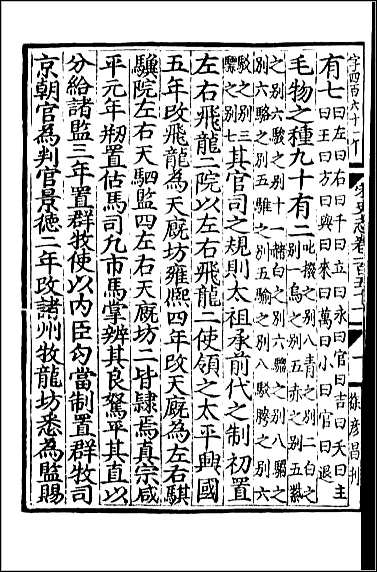 字四百六十一丁
宋史志卷一百五十一
徐彥昌刊
有七曰左曰右曰千曰立曰永曰官曰吉曰天曰主
曰王曰方曰與曰來曰萬曰小曰官曰退
毛物之種九十有二叱撥之別八青之別二白之
別一烏之別五赤之別五紫
之別六駿之別十一赭白之別六騮之別八騧之
別六駱之別五騅之別五騟之別八駁騁之別六
駁之別三
驃之別七其官司之規則太祖承前代之制初置
左右飛龍二院以左右飛龍二使領之太平興國
五年改飛龍為天廄坊雍熙四年改天廄為左右騏
驥院左右天駟監四左右天廄坊二皆隸焉真宗咸
平元年刱置估馬司凡市馬掌辨其良駑平其直以
分給諸監三年置群牧使以內臣勾當制置群牧司
京朝官為判官景德二年改諸州牧龍坊悉為監賜